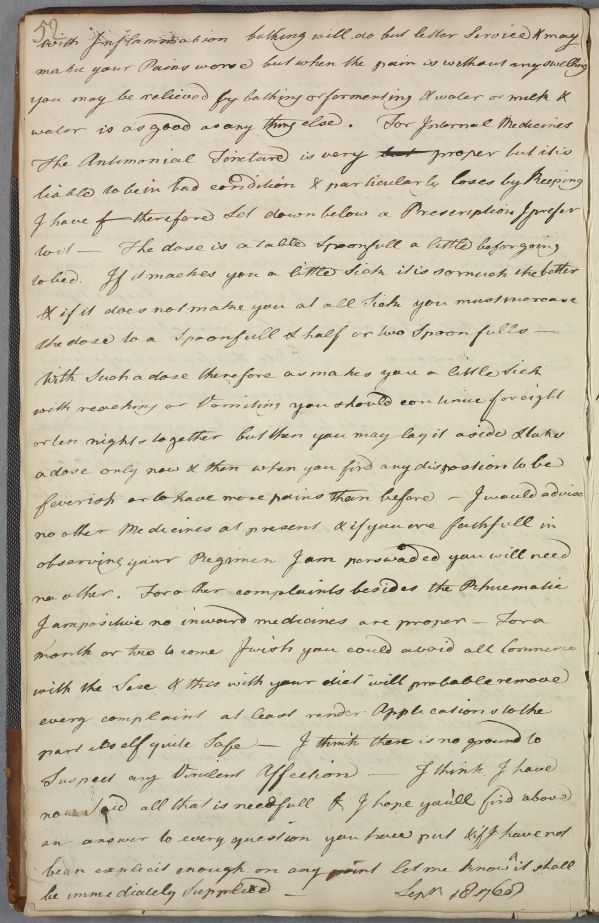 52
with Inflammation bathing will do but letter Service & may
make your Pains worse but when the pain is without any swelling
you may be relieved by bathing or formenting & water or milk &
water is as good as any thing else. For Internal Medicines
The Antimonial Tincture is very but proper but it is
liable to be in bad condition & particularly loses by Keeping
I have therefore Set down below a Prescription I prefer
to it — The dose is a table Spoonfull a little before going
to bed. If it maekes you a little Sick it is so much the better
& if it does not make you at all Sick you must increase
the dose to a Spoonfull & half or two Spoonfulls —
With Such a dose therefore as makes you a little Sick
with reaching or Vomiting you should continue for eight
or ten nights together but then you may lay it aside & take
a dose only now & then when you find any dispostion to be
feverish or to have more pains than before — I would advise
no other Medicines at present & if you are faithfull in
observing your Regimen I am perswaded you will need
no other. For other complaints besides the Rhuematic
I am positive no inward medicines are proper — For a
month or two to come I wish you could avoid all Commerce
with the Sexe & this with your diet will probable remove
every complaint at least render Applications to the
part itself quite Safe — I think there is no ground to
Suspect any Virulent Affection — I think I have
now Said all that is needfull & I hope you'll find above
an answer to every question you have put & if I have not
been explicit enough on any point let me know ^ it shall
be immediately Supplied — Sepr. 18 1768